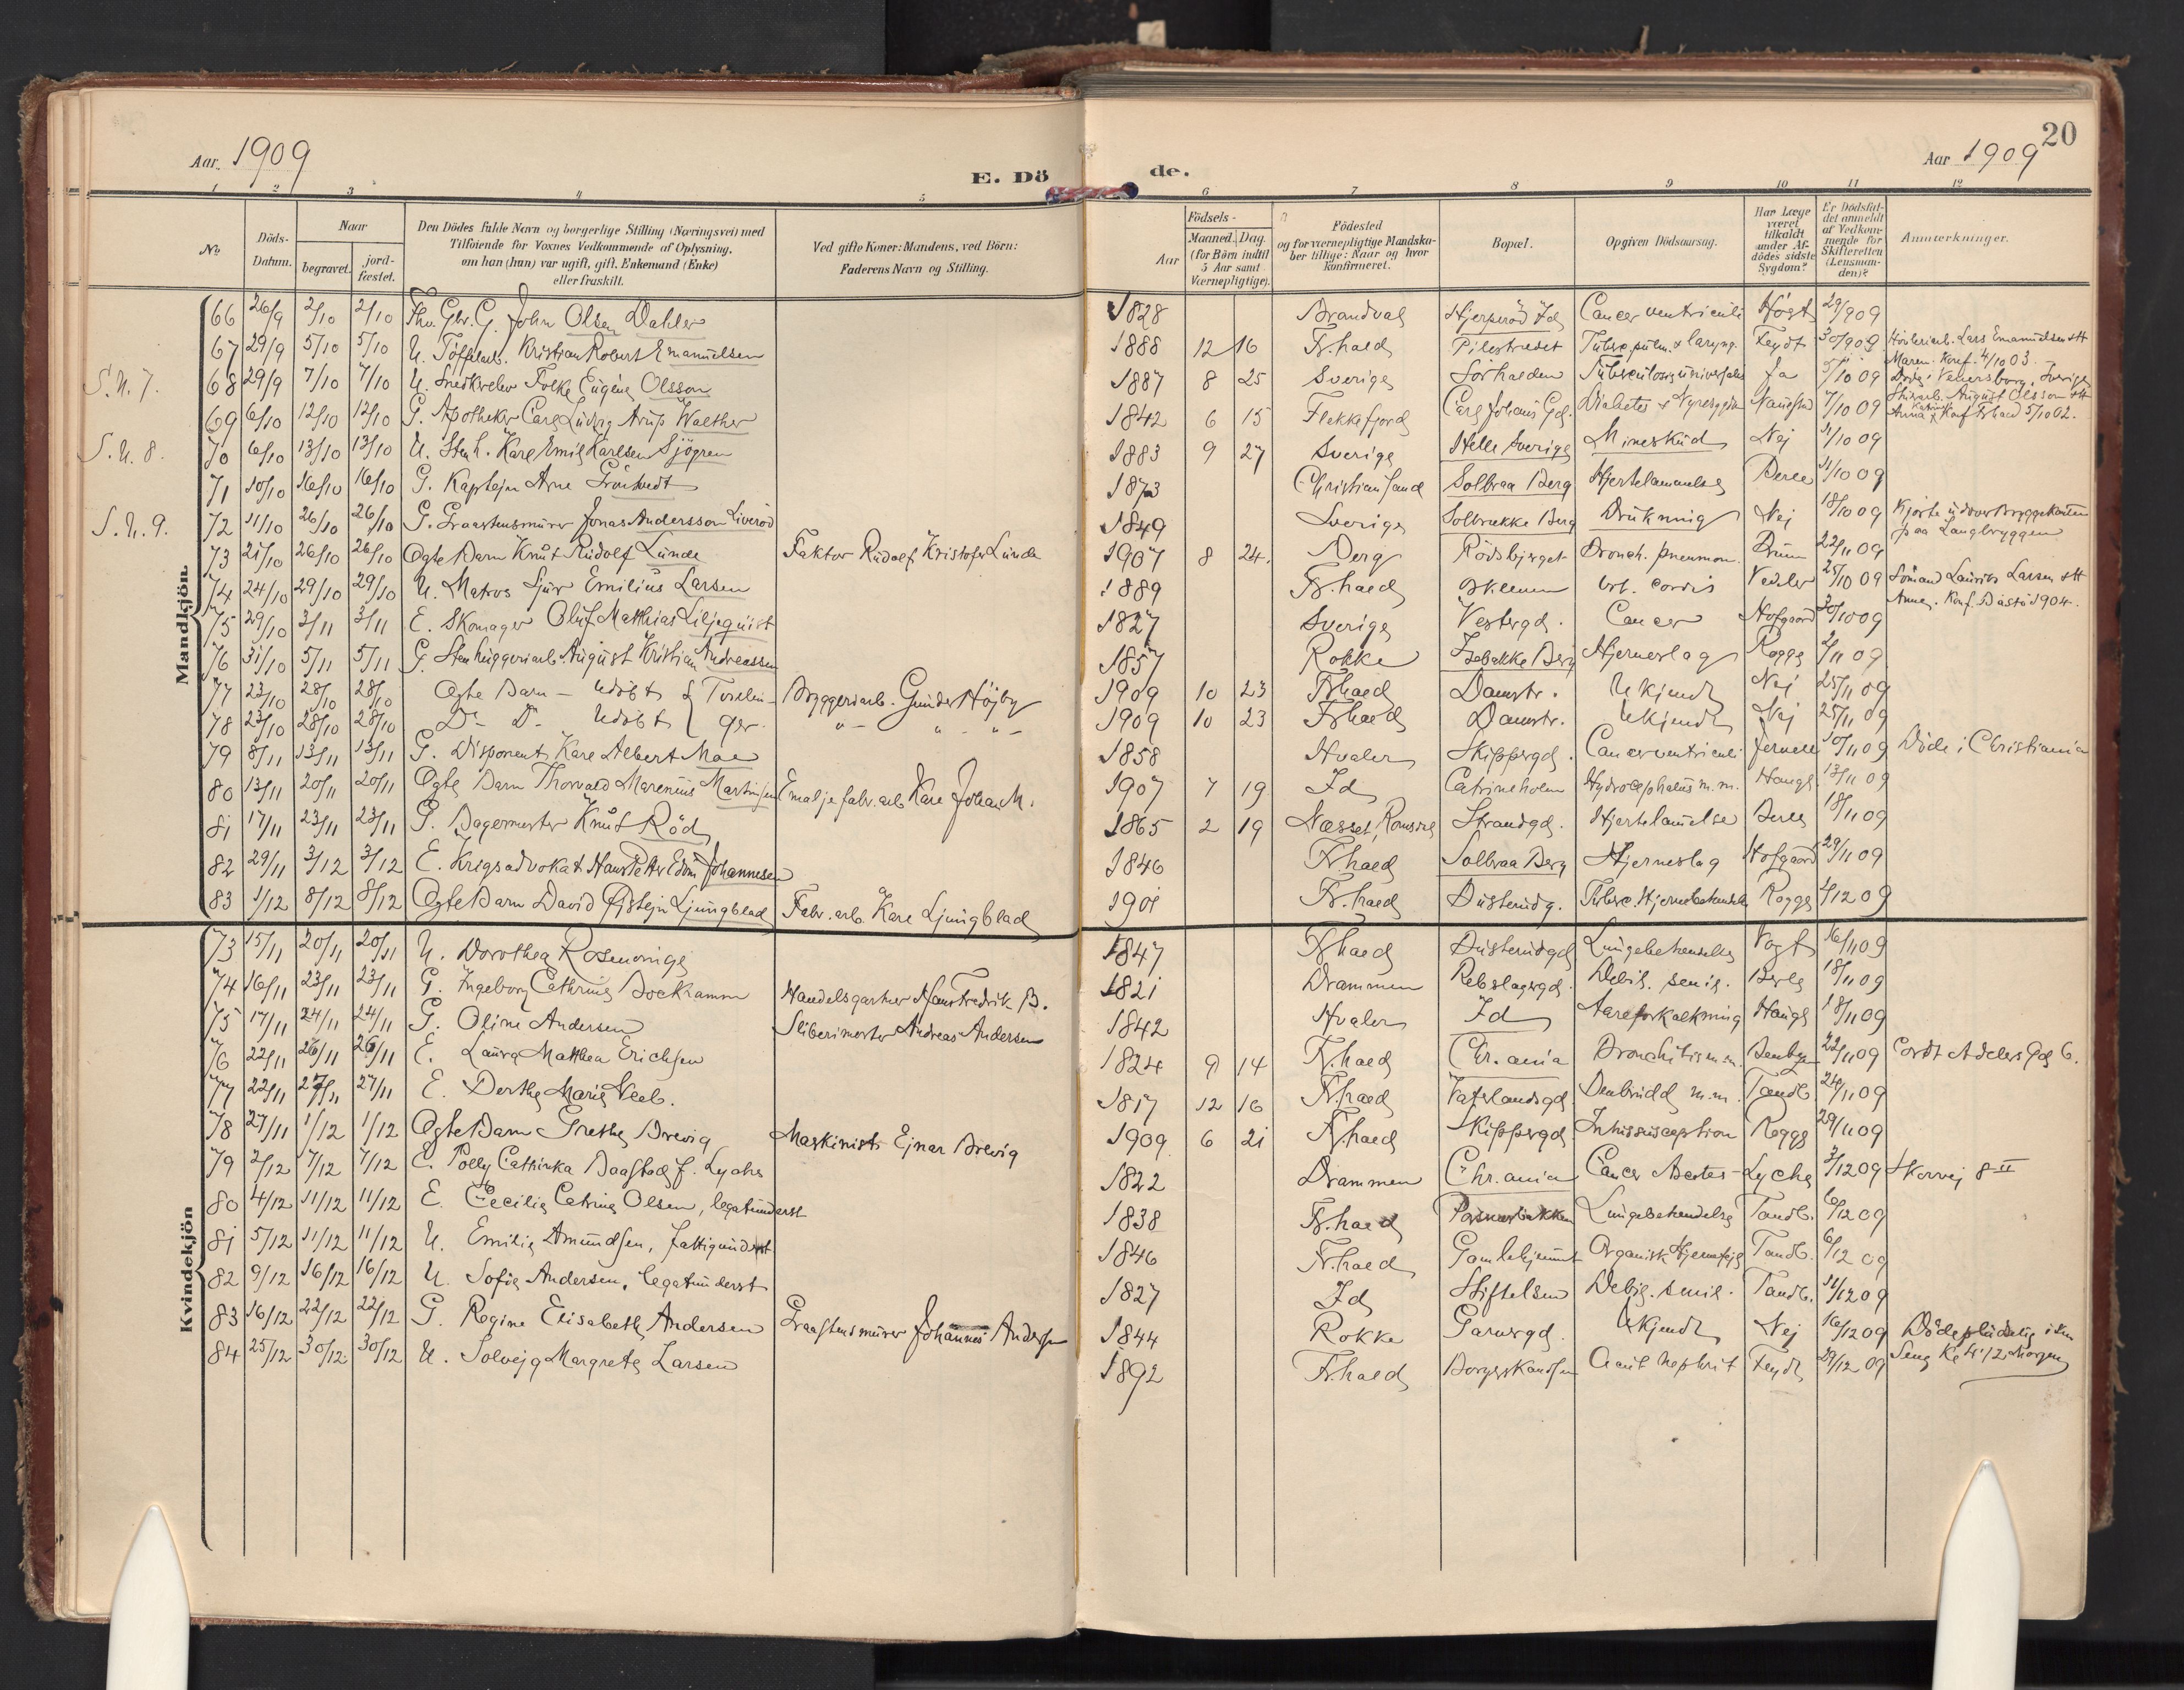 Aar 1909
E. Dö
de.
Aar 1909
20
1 2 3 4 5 6 7 8 9 10 11 12
No
Döds-Datum.
Naar
begravet.
jord-fæstet.
Den Dödes fulde Navn og borgerlige Stilling (Næringsvei) med Tilföiende for Voxnes Vedkommende af Oplysning, om han (hun) var ugift, gift, Enkemand (Enke) eller fraskilt.
Ved gifte Koner: Mandens, ved Börn: Faderens Navn og Stilling.
Födsels-
Aar
Maaned. Dag.
(for Börn indtil 5 Aar samt Værnepligtige).
Födested og for værnepligtige Mandskaber tillige: Naar og hvor konfirmeret.
Bopæl.
Opgiven Dödsaarsag.
Har Læge været tilkaldt under Afdödes sidste Sygdom?
Er Dödsfaldet anmeldt af Vedkommende for Skifteretten (Lensmanden)?
Anmærkninger.
Mandkjön.
66 26/9 2/10 2/10 John Olsen Dahler 1828 Brandval Cancer ventriculi 29/9 09
67 29/9 5/10 5/10 U. Kristian Robert Emanuelsen 1888 12 16 Fr.hald Pilestredet Tuberc. pulm. & laryng. Feydt 30/9 09 Lars Emanuelsen
Maren. Konf. 4/10 03.
S.U. 7. 68 29/9 7/10 7/10 U. Folke Eugéne Olsson 1887 8 25 Sverige Sörhalden Tuberculosis universalis Ja 5/10 09 Döde i Venersborg, Sverige
August Olsson
69 6/10 12/10 12/10 G. Apotheker Carl Ludvig Arup Walther 1842 6 15 Flekkefjord Carl Johans Gd. Diabetes 7/10 09
S.U. 8. 70 6/10 13/10 13/10 U. Stenh. Karl Emil Karlsen Sjögren 1883 9 27 Sverige Helle Sverige Mineskud Nej 11/10 09
71 10/10 16/10 16/10 G. Kaptejn Arne 1873 Christiansand Solbraa Berg Hjertelammelse 11/10 09
S.U. 9. 72 11/10 26/10 26/10 G. Graastensmurer Jonas Andersson Liveröd 1849 Sverige Solbrække Berg Drukning Nej 18/10 09 Kjörte udover Bryggekanten
paa Langbryggen
73 21/10 26/10 26/10 Ægte Barn Knut Rudolf Lunde Faktor Rudolf Kristofer Lunde 1907 8 24. Berg Rödsbjerget Bronch. pneumon. 22/11 09
74 24/10 29/10 29/10 U. Matros Sjur Emilius Larsen 1889 Fr.hald vit. cordis 25/10 09 Sömand Laurits Larsen
Anne. Konf. 1904.
75 29/10 3/11 3/11 E. Skomager Oluf Matthias Liljequist 1827 Sverige Vestergd. Cancer Hofgaard 30/10 09
76 31/10 5/11 5/11 G. Stenhuggeriarb. August Kristian Andreassen 1857 Rokke Isebakke Berg Hjerneslag Rogge 2/11 09
77 23/10 28/10 28/10 Ægte Barn - Udöbt { Tvillin- Bryggeriarb. Gunder Höjby 1909 10 23 Frhald Damstr. Ukjendt Nej 25/11 09
78 23/10 28/10 28/10 Do Do Udöbt { ger. 1909 10 23 Frhald Damstr. Ukjendt Nej 25/11 09
79 8/11 13/11 13/11 G. Disponent Karl Albert Moe 1858 Hvaler Skippergd. Cancer ventriculi 10/11 09 Döde i Christiania
80 13/11 20/11 20/11 Ægte Barn Thorvald Marenius Martinsen Emaljefabr.arb. Karl Johan M. 1907 7 19 Id Catrineholm Hydrocephalus m.m. Hauge 13/11 09
81 17/11 23/11 23/11 G. Bagermester Knut Röd 1865 2 19 Næsset, Romsdal Strandgd. Hjertelamelse 18/11 09
82 29/11 3/12 3/12 E. Krigsadvokat Hans Petter Johannesen 1846 Fr.hald Solbraa Berg Hjerneslag Hofgaard 29/11 09
83 1/12 8/12 8/12 Ægte Barn David Öistejn Ljungblad Fabr.arb. Karl Ljungblad 1901 Fr.hald Busterudg. Rogge 4/12 09
Kvindekjön
73 15/11 20/11 20/11 U. Dorothea Rosenvinge 1847 Frhald Busterudgd Lungebetændelse Vogt 16/11 09
74 16/11 23/11 23/11 G. Ingeborg Cathrine Bockramm Handelsgartner Hans Fredrik B. 1821 Drammen Rebslagergd. Debil. senil. 18/11 09
75 17/11 24/11 24/11 G. Oline Andersen Sliberimester Andreas Andersen 1842 Hvaler Id Aareforkalkning Hauge 18/11 09
76 22/11 26/11 26/11 E. Laura Mathea Erichsen 1824 9 14 Fr.hald Chr.ania Bronchitis m.m. 22/11 09 Cordt Adelers Gd 6.
77 22/11 27/11 27/11 E. Berthe Marie Neeb. 1817 12 16 Fr.hald Vaterlandsgd. Benbrudd m.m. Tandb. 24/11 09
78 27/11 1/12 1/12 Ægte Barn Grethe Brevig Maskinist Ejnar Brevig 1909 6 21 Fr.hald Skippergd Intussusception Rogge 29/11 09
79 2/12 7/12 7/12 E. Polly Cathinka Baastad f. Lyche 1822 Drammen Chr.ania Cancer Lyche 3/12 09 8 II
80 4/12 11/12 11/12 E. Cecilie Catrine Olsen, legatunderst 1838 Fr.hald Lungebetændelse Tandb. 6/12 09
81 5/12 11/12 11/12 U. Emilie Amundsen, fattigunderst 1846 Fr.hald Gamlehjemmet Organisk Tandb. 6/12 09
82 9/12 16/12 16/12 U. Sofie Andersen, legatunderst 1827 Id Stiftelsen Debil. senil. Tandb. 11/12 09
83 16/12 22/12 22/12 G. Regine Elisabeth Andersen Graastensmurer Johannes Andersen 1844 Rokke Garvergd. Ukjendt Nej 16/12 09 Döde pludselig i sin
Seng Kl 4 1/2 Morgen
84 25/12 30/12 30/12 U. Solvejg Margrete Larsen 1892 Fr.hald Borgerskandsen Acut Nephrit Feydt 29/12 09